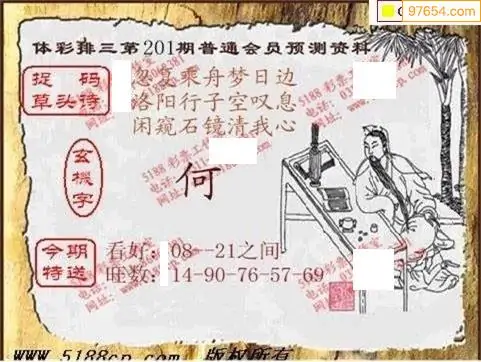 97654.com
体彩排三第201期普通会员预测资料
捉 码
草头诗
忽复乘舟梦日边
洛阳行子空叹息
闲窥石镜清我心
玄機字
何
今期
特送
看好:08--21之间
旺数:14-90-76-57-69
www.5188cp.com 版权所有